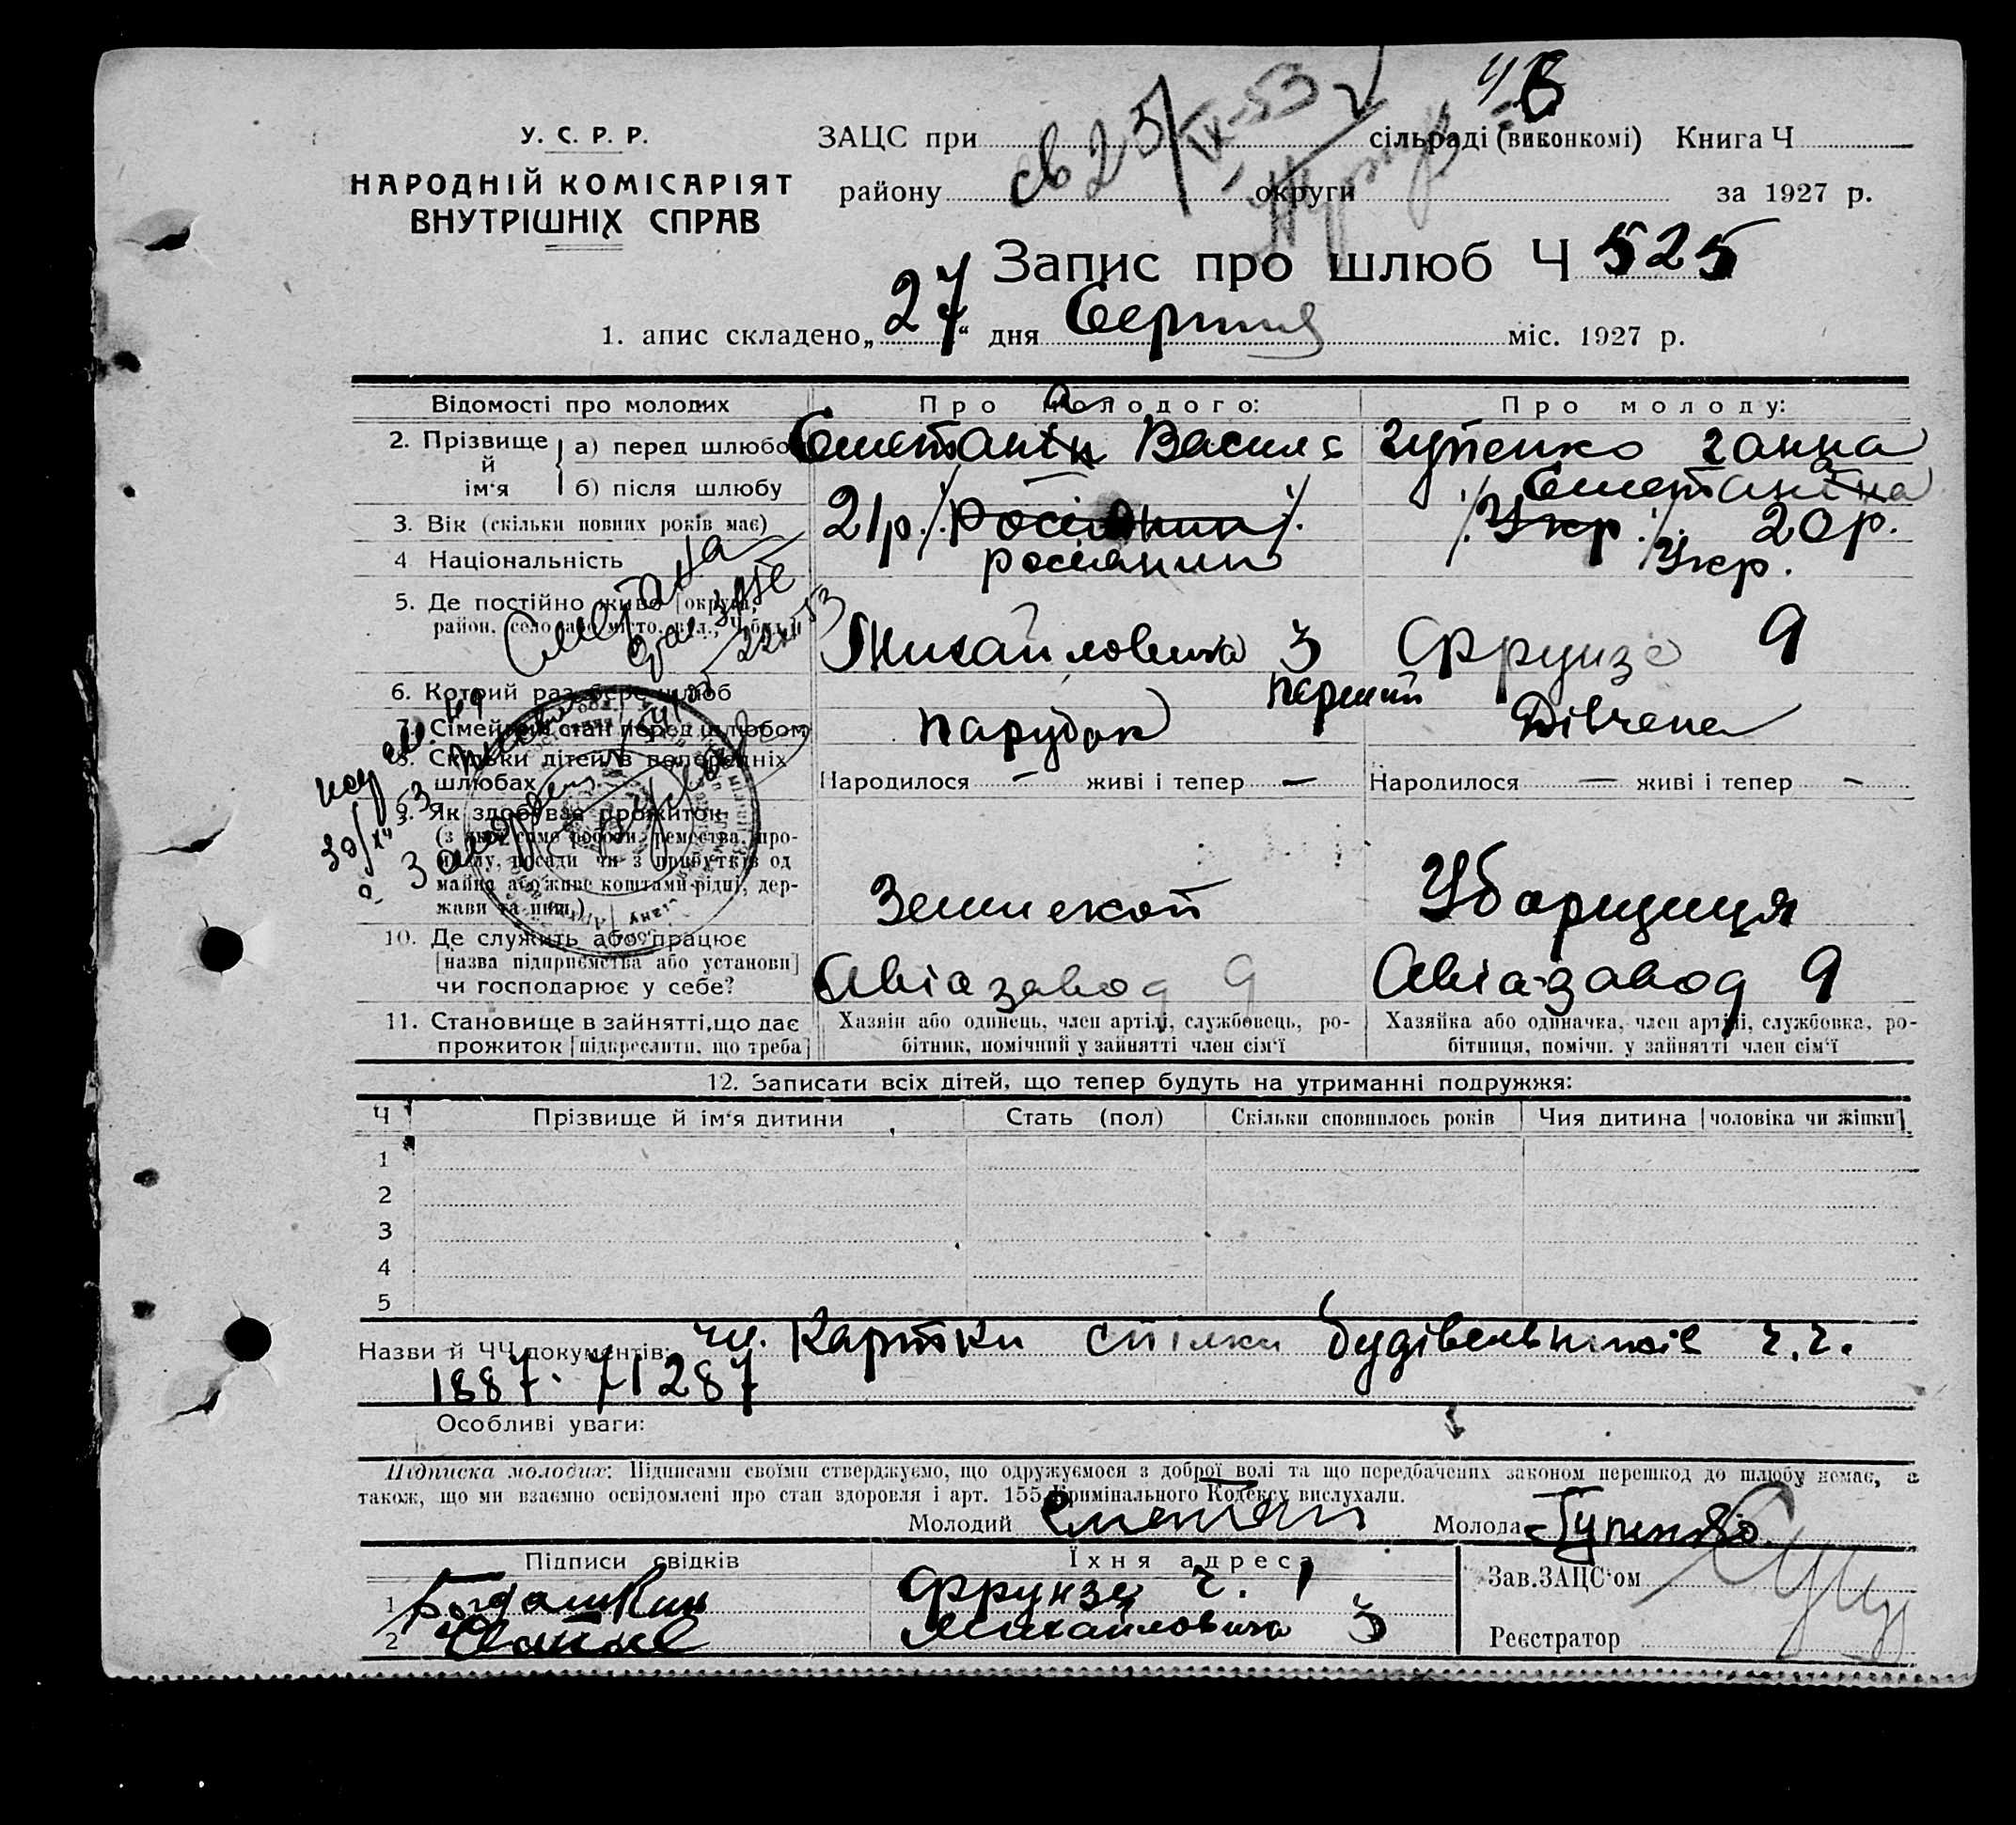 48
У. С. Р. Р.
НАРОДНІЙ КОМІСАРІЯТ
ВНУТРІШНІХ СПРАВ
ЗАЦС при св 25/IX-53 сільраді (виконкомі) Книга Ч
району округи за 1927 р.
Запис про шлюб Ч 525
1. апис складено „27“ дня Серпня міс. 1927 р.
Відомості про молодих
Про молодого:
Про молоду:
2. Прізвище й ім‘я
а) перед шлюбо
Сметанін Василь
Гупенко Ганна
б) після шлюбу
—
Сметаніна
3. Вік (скільки повних років має)
21р. /. Росіянин /.
/. Укр. /. 20р.
4 Національність
росіянин
Укр.
5. Де постійно живе [округа,
район, село або місто, вул., Ч буд.]
Михайловича 3
Фрунзе 9
Сметана
6. Котрий раз бере шлюб
перший
7. Сімейний стан перед шлюбом
парубок
Дівчена
8. Скільки дітей в попередніх
шлюбах
Народилося — живі і тепер —
Народилося — живі і тепер -
9. Як здобував прожиток
(з якої саме роботи, ремества, про-
мислу, посади чи з прибутків од
майна або живе коштами рідні, держ-
жави та инш.)
Землекоп
Уборщиця
10. Де служить або працює
[назва підприємства або установи]
чи господарює у себе?
Авіазавод 9
Авіа-завод 9
11. Становище в зайнятті, що дає
прожиток [підкреслити, що треба]
Хазяїн або одинець, член артілі, службовець, ро-
бітник, помічний у зайнятті член сім‘ї
Хазяйка або одиначка, член артілі, службовка, ро-
бітниця, помічн. у зайнятті член сім‘ї
12. Записати всіх дітей, що тепер будуть на утриманні подружжя:
Ч
Прізвище й ім‘я дитини
Стать (пол)
Скільки сповнилось років
Чия дитина [чоловіка чи жінки]
1
2
3
4
5
Назви й ЧЧ документів: чл. Картки спілки будівельників ч.ч.
1887. 71287
Особливі уваги:
Підписка молодих: Підписами своїми стверджуємо, що одружуємося з доброї волі та що передбачених законом перешкод до шлюбу немає, а
також, що ми взаємно освідомлені про стан здоровля і арт. 155 Кримінального Кодексу вислухали.
Молодий Сметанін
Молода Гупенко
Підписи свідків
Їхня адреса
1 Фрунзе ч. 1
2 Михайловича 3
Зав.ЗАЦС‘ом
Реєстратор